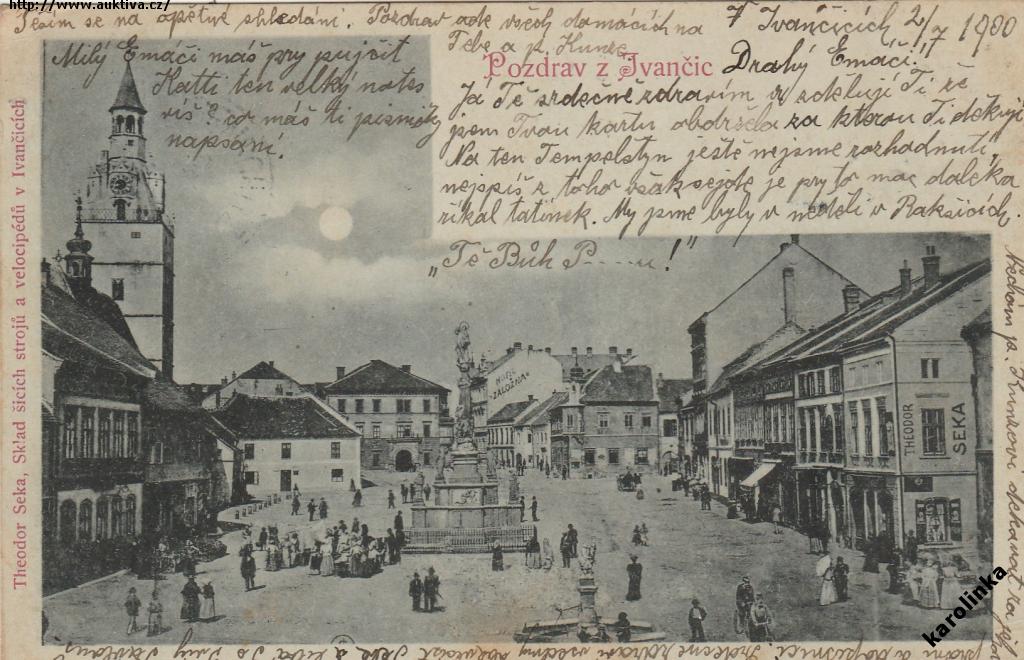 http://www.auktiva.cz/
V Ivančicích 2/7 1900
Pozdrav z Ivančic
Drahý Emáči!
Já Tě srdečně zdravím a sděluji Ti že
jsem Tvou kartu obdržela za kterou Ti děkuji
Na ten Tempelštyn ještě nejsme rozhodnuti,
nejspíš z toho však sejde je prý to moc daleka
říkal tatínek. My jsme byly v neděli v Rakšicích.
"Tě Bůh P.....u!"
Těším se na opětné shledání. Pozdrav ode všech domácích na
Tebe a p. Kunec
Milý Emáči máš prý pujčit
Katti ten velký notes
víš? co máš ti písničky
napsaní.
HOTEL
ZÁLOŽNA
THEODOR
SEKA
Theodor Seka, Sklad šicích strojů a velocipédů v Ivančicích
karolinka